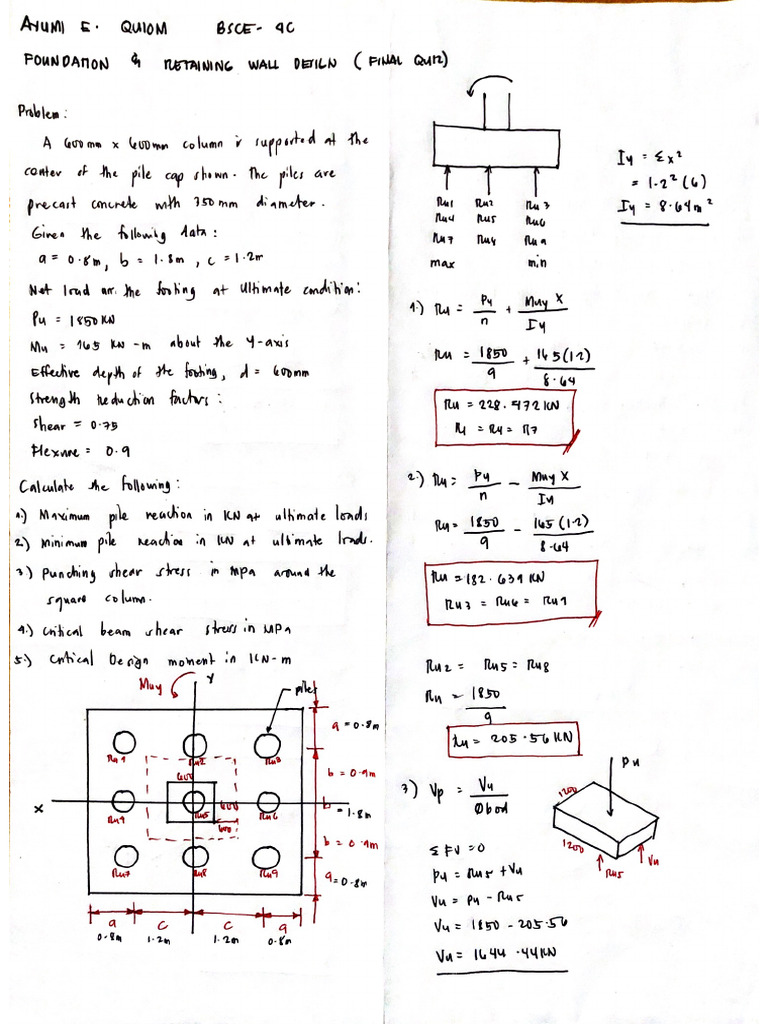 AYUMI E. QUIOM BSCE - 4C
FOUNDATION & RETAINING WALL DESIGN (FINAL QUIZ)
Problem:
A 600mm x 600mm column is supported at the
center of the pile cap shown. The piles are
precast concrete with 350mm diameter.
Given the following data:
a = 0.8m, b = 1.8m, c = 1.2m
Net load on the footing at ultimate condition:
Pu = 1850 KN
Mu = 165 KN-m about the y-axis
Effective depth of the footing, d = 600mm
Strength reduction factors:
Shear = 0.75
Flexure = 0.9
Calculate the following:
1.) Maximum pile reaction in KN at ultimate loads
2.) Minimum pile reaction in KN at ultimate loads.
3.) Punching shear stress in MPa around the
square column.
4.) Critical beam shear stress in MPa
5.) Critical Design moment in KN-m
Muy Y piles
a = 0.8m
Ru1 Ru2 Ru3
600
b = 0.9m
X Ru4 Ru5 600 Ru6
b = 1.8m
600
b = 0.9m
Ru7 Ru8 Ru9
a = 0.8m
a c c a
0.8m 1.2m 1.2m 0.8m
Ru1 Ru2 Ru3
Ru4 Ru5 Ru6
Ru7 Ru8 Ru9
max min
Iy = Σx²
= 1.2²(6)
Iy = 8.64m²
1.) Ru = Pu/n + Muy X/Iy
Ru = 1850/9 + 165(1.2)/8.64
Ru = 228.472 KN
R1 = R4 = R7
2.) Ru = Pu/n - Muy X/Iy
Ru = 1850/9 - 165(1.2)/8.64
Ru = 182.639 KN
Ru3 = Ru6 = Ru9
Ru2 = Ru5 = Ru8
Ru = 1850/9
Ru = 205.56 KN
3.) Vp = Vu/Øbod
ΣFV = 0
Pu = Ru5 + Vu
Vu = Pu - Ru5
Vu = 1850 - 205.56
Vu = 1644.44 KN
Pu
1200
1200
Ru5 Vu